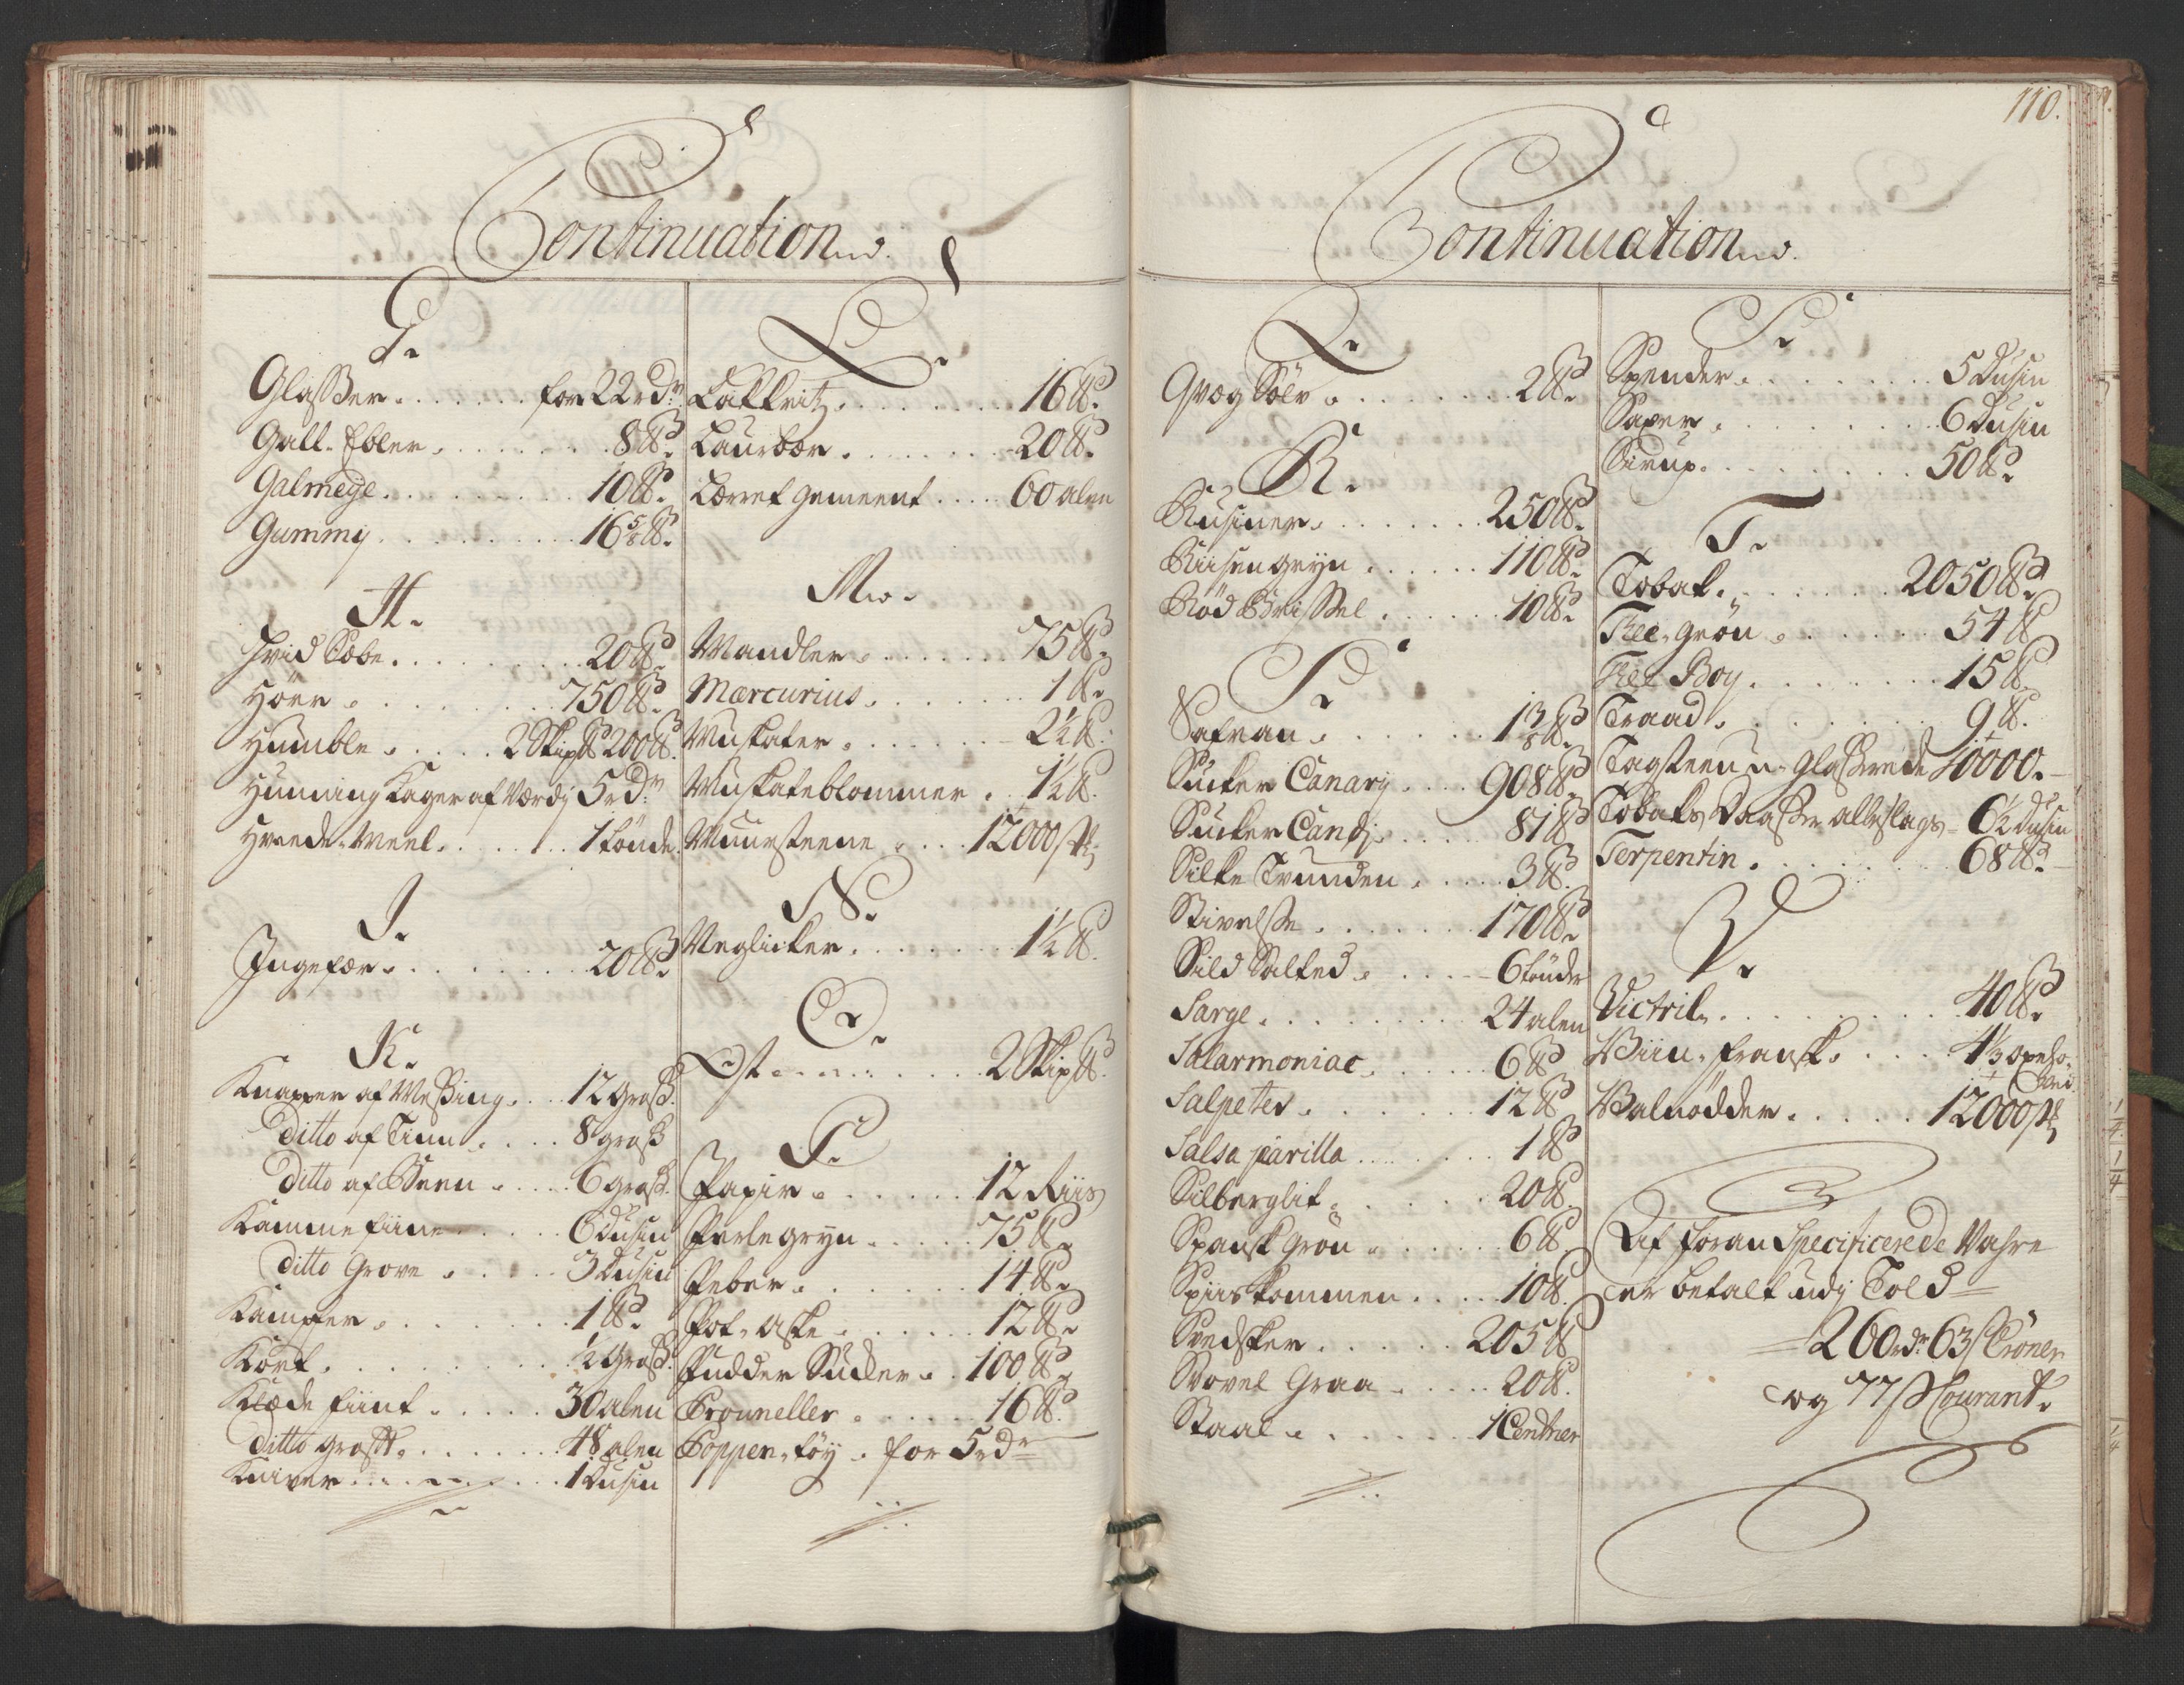 Continuation
G.
Glasser . . . . . . for 22 rdr
Gall-Ebler . . . . . . 8 ℔.
Galmeye . . . . . . 10 ℔.
Gummy . . . . . . 16 5/8 ℔.
H.
Hvid Sæbe . . . . . . 20 ℔.
Hörr . . . . . . 750 ℔.
Humble . . . . 2 Skip℔ 200 ℔.
Hunning Kager af Værdj 5 rdr
Hvede-Meel . . . . . . 1 tönde.
I.
Ingefær . . . . . . 20 ℔.
K.
Knapper af Messing . . . 12 gross.
ditto af Tinn . . . . 8 gross
ditto af Been . . . . 6 gross.
Kamme fiine . . . . . 6 dusin
ditto Grove . . . . 3 Dusin
Kampfer . . . . . . 1 ℔.
Kort . . . . . . ½ Gross.
Klæde fiint . . . . . 30 alen
ditto groft . . . . . . 48 alen
Kniver . . . . . . 1 Dusin
L.
Lakkritz . . . . . . 16 ℔.
Laurbær . . . . . . 20 ℔.
Lærret gemeent . . . . 60 alen
M.
Mandler . . . . . . 75 ℔.
Mercurius . . . . . . 1 ℔.
Muskater . . . . . . 2½ ℔.
Muskateblommer . 1½ ℔.
Muursteene . . . . 12000 st
N.
Neglicker . . . . . . 1½ ℔.
O.
Ost . . . . . . 2 Skip℔.
P.
Papir . . . . . . 12 Riis
Perlegryn . . . . . 75 ℔.
Peber . . . . . . 14 ℔.
Pot-Aske . . . . . . 12 ℔.
Pudder Sucker . . 100 ℔.
Prouneller . . . . . 16 ℔.
Poppen-töy . for 5 rdr
110.
Continuation
Q.
Qvæg Sölv . . . . . . 2 ℔.
R.
Rusiner . . . . . . 250 ℔.
Riisengryn . . . . . . 110 ℔.
Röd Brissel . . . . . . 10 ℔.
S.
Safran . . . . . . 1 3/8 ℔.
Sucker Canary . . . . 908 ℔.
Sucker Candj . . . . 81 ℔
Silke Trunden . . . . . 3 ℔.
Stivelse . . . . . . 170 ℔.
Sild Salted . . . . 6 tönder
Sarge . . . . . . 24 alen
Salarmoniac . . . . . 6 ℔
Salpeter . . . . . . 12 ℔
Salsa parilla . . . . . . 1 ℔
Silberglit . . . . . . 20 ℔.
Spansk Grön . . . . . . 6 ℔.
Spiiskommen . . . . 10 ℔.
Svedsker . . . . . . 205 ℔
Svovel Graa . . . . . 20 ℔.
Staal . . . . . . 1 Centner
S.
Spender . . . . . . 5 Dusin
Saxer . . . . . . 6 Dusin
Sirup . . . . . . 50 ℔.
T.
Tobak . . . . . . 2050 ℔.
Thee-Grön . . . . . . 54 ℔
Thee Boy . . . . . . 15 ℔.
Traad . . . . . . 9 ℔.
Tagsteen u-glasserede 10000.
Tobaks Daasser alleslags 6½ Dusin
Terpentin . . . . . . 68 ℔.
V.
Victril . . . . . . 40 ℔.
Viin, fransk . . . . 4⅓ oxeho-
ved
Valnödder . . . . . 12000 st
Af foran Specificerede Vahre
er betalt udj Told
260 rdr 63 s Croner
og 77 s Courant.